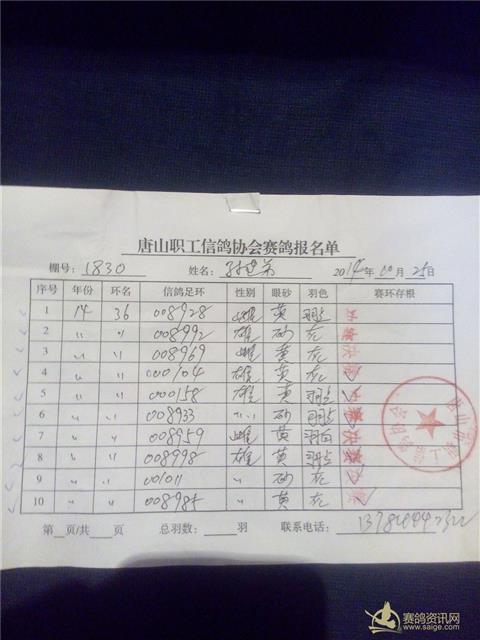 唐山职工信鸽协会赛鸽报名单
棚号: 1830 姓名: 2014年10月25日
序号 年份 环名 信鸽足环 性别 眼砂 羽色 赛环存根
1 14 36 008928 雌 黄 雨点
2 〃 〃 008992 雄 砂 灰
3 〃 〃 008969 雌 黄 灰
4 〃 〃 000104 雄 黄 灰
5 〃 〃 000158 雄 黄 雨点
6 〃 〃 008933 〃 砂 雨点
7 〃 〃 008959 雌 黄
8 〃 〃 008998 雄 黄 雨点
9 〃 〃 〃 砂 灰
10 〃 〃 008985 〃 黄 灰
第 页/共 页 总羽数: 羽 联系电话:
赛鸽资讯网
www.saige.com